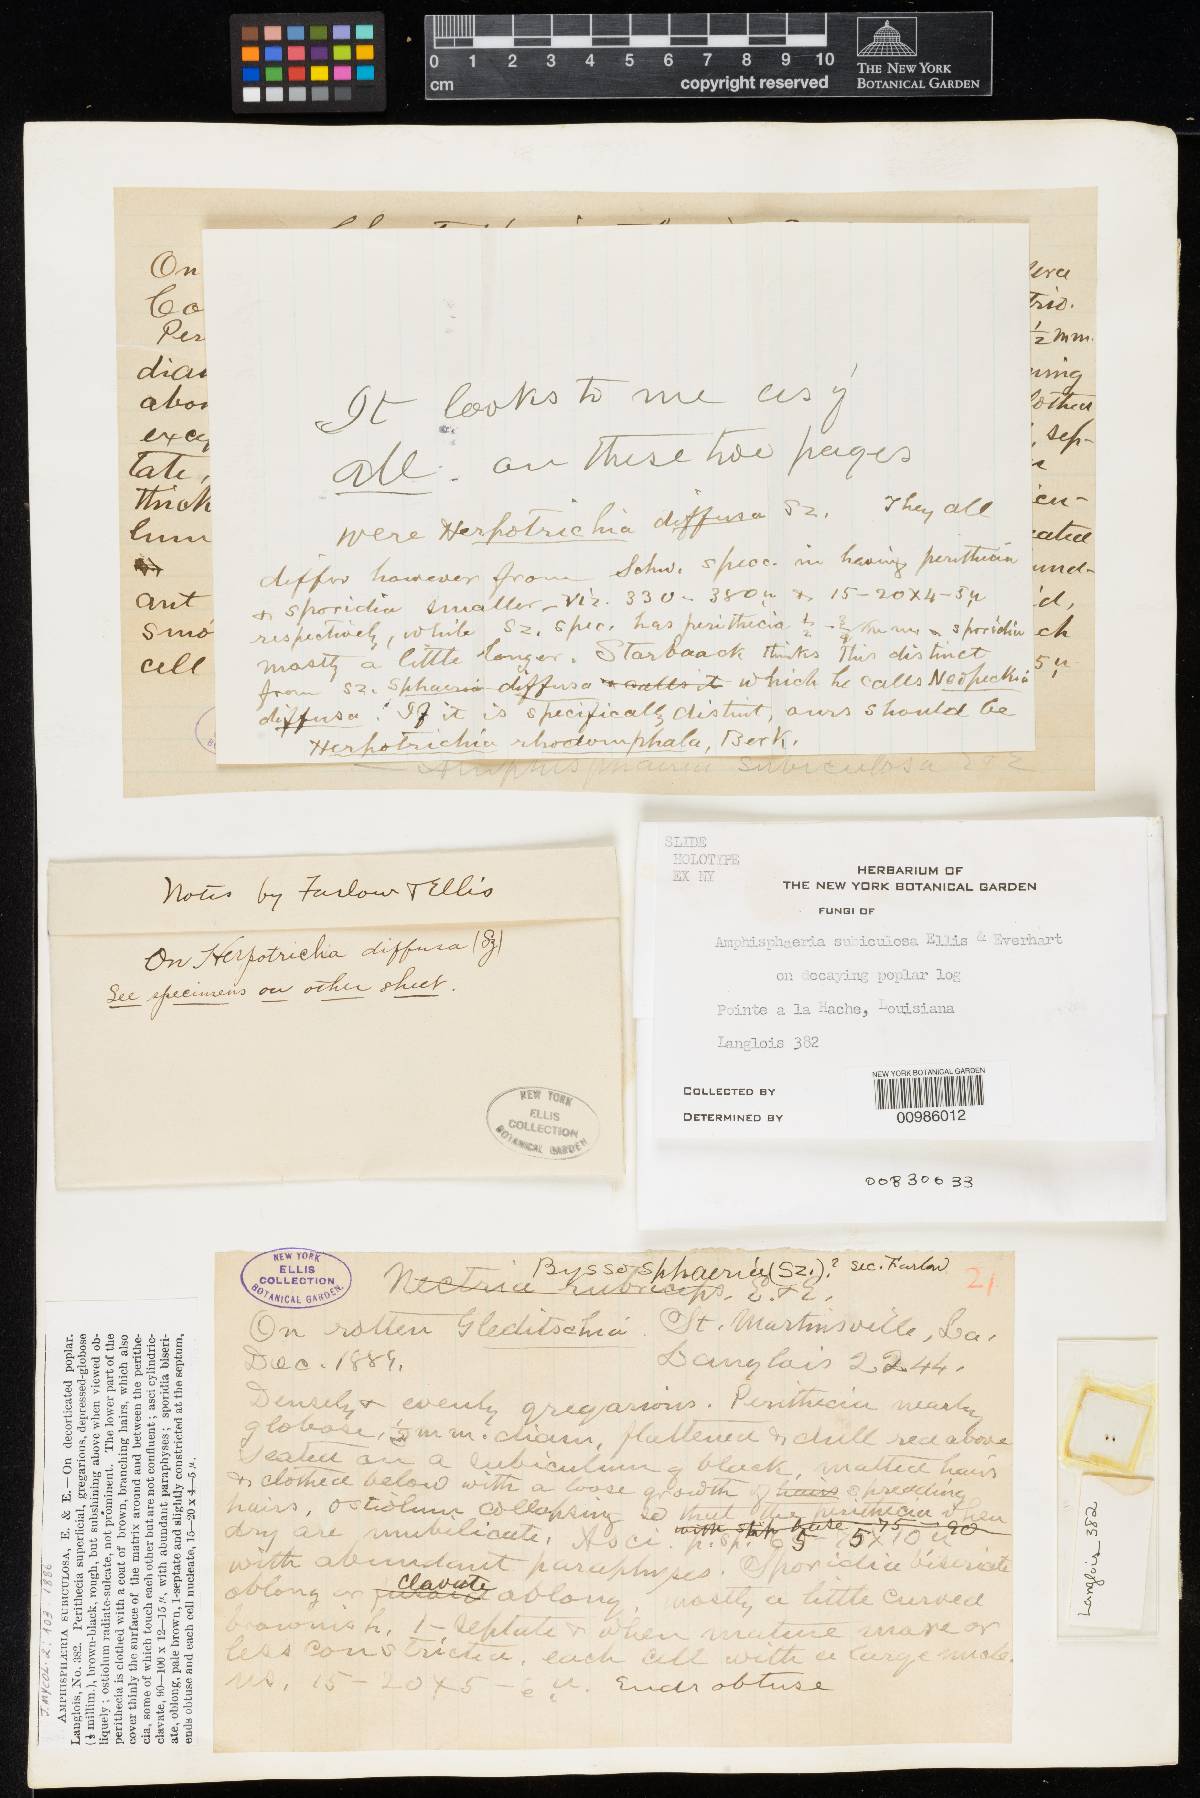 0 1 2 3 4 5 6 7 8 9 10
cm
copyright reserved
THE NEW YORK
BOTANICAL GARDEN
On
Co
Per
diam
abov
excep
tate,
thick
lum
ant
smo
cell
trio.
½ mm.
sep-
ated
und-
id,
ch
5 µ
It looks to me as if
all. on these two pages
were Herpotrichia diffusa Sz. They all
differ however from Schw. spec. in having perithecia
& sporidia smaller - viz. 330 - 380µ & 15-20x4-5µ
respectively, while Sz. spec. has perithecia & sporidia
mostly a little longer. Starbaack thinks this distinct
from Sz. Sphaeria diffusa & calls it which he calls Neopeckia
diffusa. If it is specifically distinct, ours should be
Herpotrichia rhodomphala, Berk.
Amphisphaeria subiculosa E&E
Notes by Farlow & Ellis
On Herpotrichia diffusa (Sz)
See specimens on other sheet.
NEW YORK
ELLIS
COLLECTION
BOTANICAL GARDEN
SLIDE
HOLOTYPE
EX NY
HERBARIUM OF
THE NEW YORK BOTANICAL GARDEN
FUNGI OF
Amphisphaeria subiculosa Ellis & Everhart
on decaying poplar log
Pointe a la Hache, Louisiana
Langlois 382
COLLECTED BY
DETERMINED BY
NEW YORK BOTANICAL GARDEN
00986012
00830633
NEW YORK
ELLIS
COLLECTION
BOTANICAL GARDEN.
Byssosphaeria (Sz.)? sec. Farlow
21
Nectria rubriceps. E.&E.
On rotten Gleditschia. St. Martinsville, La.
Dec. 1889. Langlois 2244.
Densely & evenly gregarious. Perithecia nearly
globose, ½ mm. diam, flattened & dull red above
Seated on a subiculum of black, matted hairs
& clothed below with a loose growth of hairs spreading
hairs, ostiolum collapsing so that the perithecia when
dry are umbilicate. Asci. p. sp. 75x10 µ
with abundant paraphyses. Sporidia biseriate
oblong or clavate oblong, mostly a little curved
brownish, 1-septate & when mature more or
less constricted, each cell with a large nucle-
us, 15-20x5-6 µ. Ends obtuse
J. MYCOL. 2: 103 1886
AMPHISPHÆRIA SUBICULOSA, E. & E.—On decorticated poplar.
Langlois, No. 382. Perithecia superficial, gregarious, depressed-globose
(½ millim.), brown-black, rough, but subshining above when viewed ob-
liquely; ostiolum radiate-sulcate, not prominent. The lower part of the
perithecia is clothed with a coat of brown, branching hairs, which also
cover thinly the surface of the matrix around and between the perithe-
cia, some of which touch each other but are not confluent; asci cylindric-
clavate, 90—100 x 12—15 µ, with abundant paraphyses; sporidia biseri-
ate, oblong, pale brown, 1-septate and slightly constricted at the septum,
ends obtuse and each cell nucleate, 15—20 x 4—5 µ.
Langlois 382